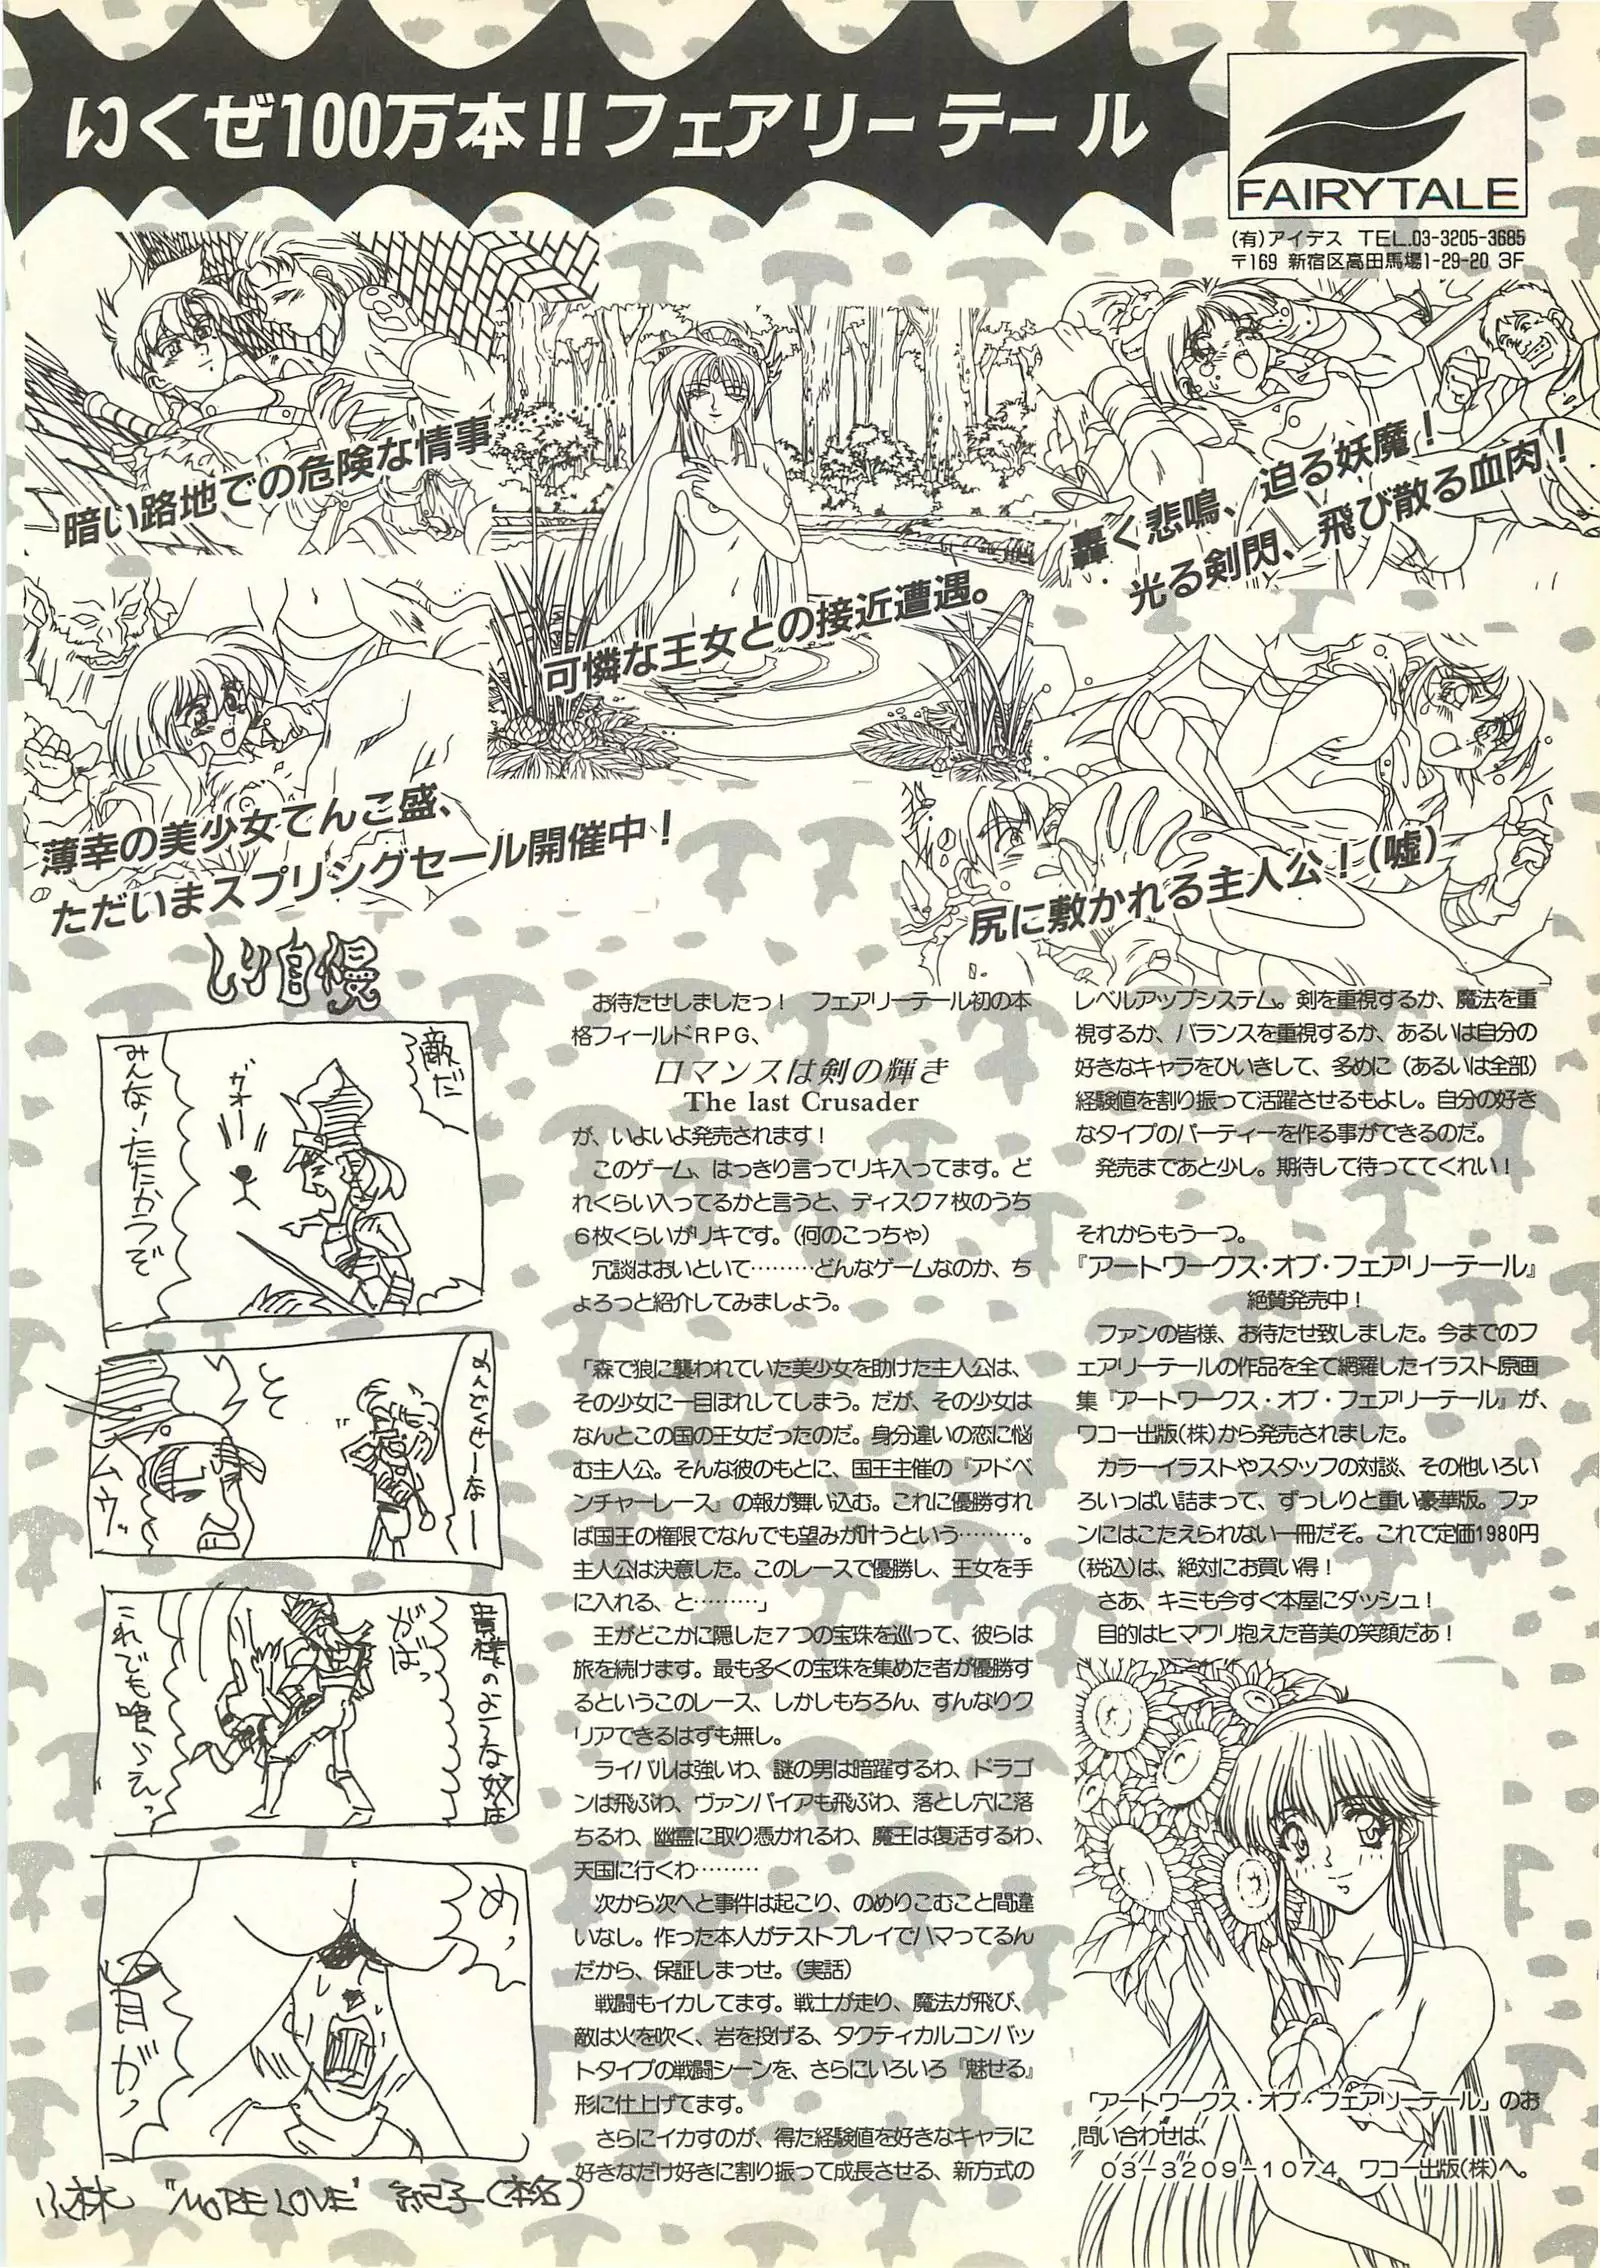 いくぜ100万本!!フェアリーテール
FAIRYTALE
(有)アイデス TEL.03-3205-3685
〒169 新宿区高田馬場1-29-20 3F
暗い路地での危険な情事
可憐な王女との接近遭遇。
轟く悲鳴、迫る妖魔！
光る剣閃、飛び散る血肉！
薄幸の美少女てんこ盛、
ただいまスプリングセール開催中！
尻に敷かれる主人公！(嘘)
しり自慢
敵だ
ガオー
みんな！たたかうぞ
めんどくせーなー
そ
ムウッ
貴様のような奴は
がばっ
これでも喰らえっ
めっ
目がっ
小林 "MORE LOVE" 紀子(本名)
お待たせしましたっ！ フェアリーテール初の本
格フィールドRPG、
ロマンスは剣の輝き
The last Crusader
が、いよいよ発売されます！
このゲーム、はっきり言ってリキ入ってます。ど
れくらい入ってるかと言うと、ディスク7枚のうち
6枚くらいがリキです。(何のこっちゃ)
冗談はおいといて………どんなゲームなのか、ち
ょろっと紹介してみましょう。
「森で狼に襲われていた美少女を助けた主人公は、
その少女に一目ぼれしてしまう。だが、その少女は
なんとこの国の王女だったのだ。身分違いの恋に悩
む主人公。そんな彼のもとに、国王主催の『アドベ
ンチャーレース』の報が舞い込む。これに優勝すれ
ば国王の権限でなんでも望みが叶うという………。
主人公は決意した。このレースで優勝し、王女を手
に入れる、と………」
王がどこかに隠した7つの宝珠を巡って、彼らは
旅を続けます。最も多くの宝珠を集めた者が優勝す
るというこのレース、しかしもちろん、すんなりク
リアできるはずも無し。
ライバルは強いわ、謎の男は暗躍するわ、ドラゴ
ンは飛ぶわ、ヴァンパイアも飛ぶわ、落とし穴に落
ちるわ、幽霊に取り憑かれるわ、魔王は復活するわ、
天国に行くわ………
次から次へと事件は起こり、のめりこむこと間違
いなし。作った本人がテストプレイでハマってるん
だから、保証しまっせ。(実話)
戦闘もイカしてます。戦士が走り、魔法が飛び、
敵は火を吹く、岩を投げる、タクティカルコンバッ
トタイプの戦闘シーンを、さらにいろいろ『魅せる』
形に仕上げてます。
さらにイカすのが、得た経験値を好きなキャラに
好きなだけ好きに割り振って成長させる、新方式の
レベルアップシステム。剣を重視するか、魔法を重
視するか、バランスを重視するか、あるいは自分の
好きなキャラをひいきして、多めに（あるいは全部）
経験値を割り振って活躍させるもよし。自分の好き
なタイプのパーティーを作る事ができるのだ。
発売まであと少し。期待して待っててくれい！
それからもう一つ。
『アートワークス・オブ・フェアリーテール』
絶賛発売中！
ファンの皆様、お待たせ致しました。今までのフ
ェアリーテールの作品を全て網羅したイラスト原画
集『アートワークス・オブ・フェアリーテール』が、
ワコー出版(株)から発売されました。
カラーイラストやスタッフの対談、その他いろい
ろいっぱい詰まって、ずっしりと重い豪華版。ファ
ンにはこたえられない一冊だぞ。これで定価1980円
(税込)は、絶対にお買い得！
さあ、キミも今すぐ本屋にダッシュ！
目的はヒマワリ抱えた音美の笑顔だあ！
「アートワークス・オブ・フェアリーテール」のお
問い合わせは、
03-3209-1074 ワコー出版(株)へ。